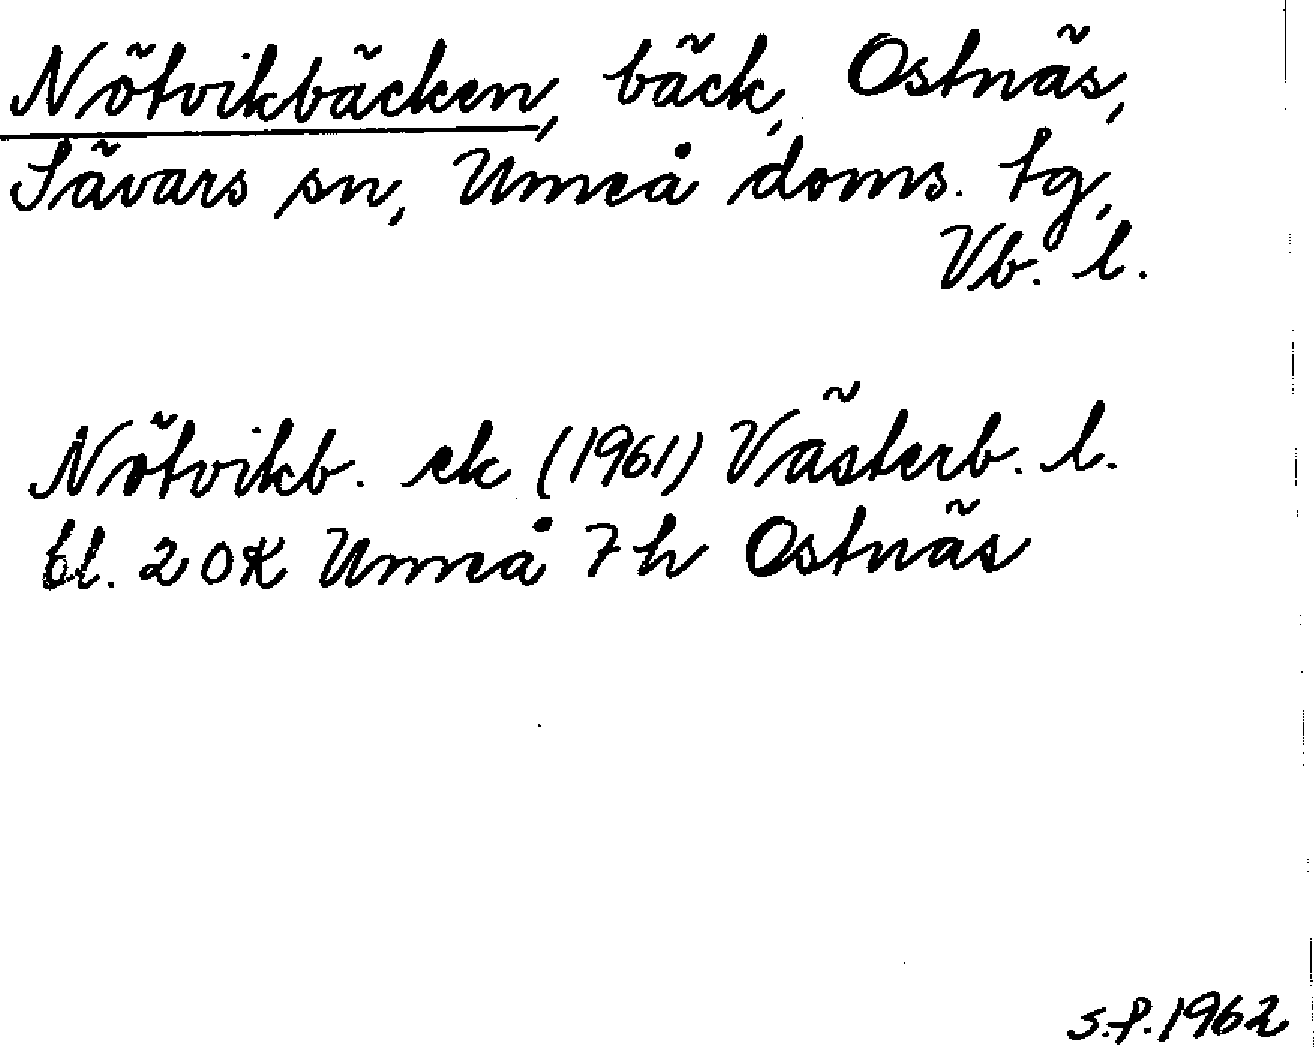 Nötvikbäcken, bäck, Ostnäs,
Sävars sn, Umeå doms. tg,
Vb. l.
Nötvikb. ek (1961) Västerb. l.
bl. 20K Umeå 7h Ostnäs
S.f. 1962